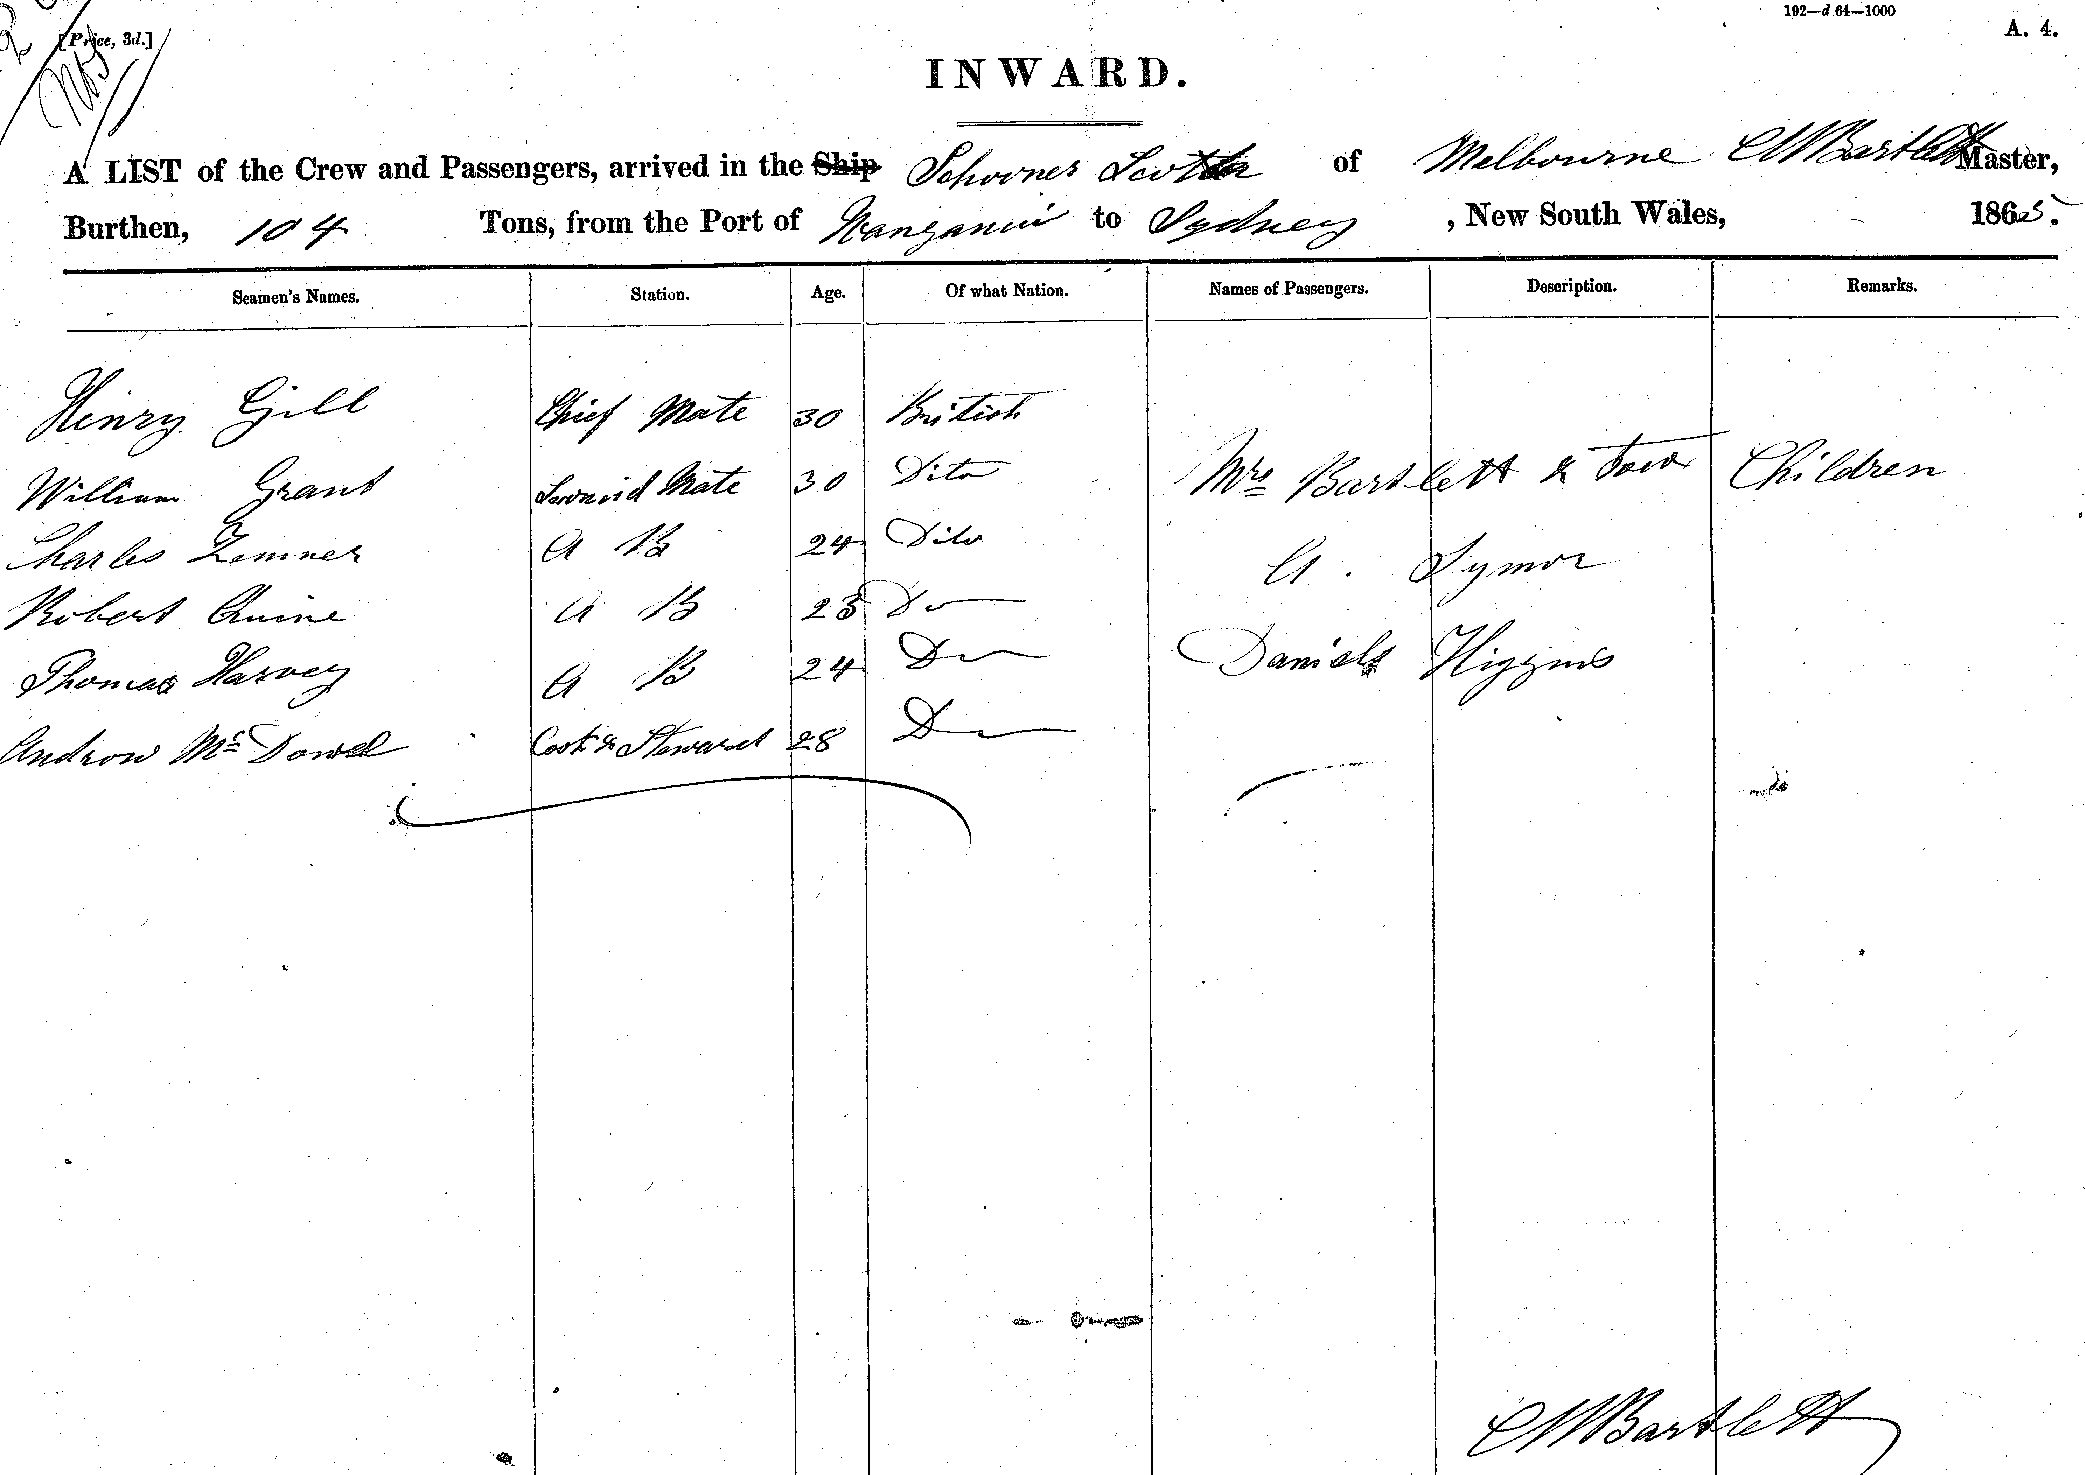 192—d 64—1000
[Price, 3d.]
A. 4.
INWARD.
A LIST of the Crew and Passengers, arrived in the Ship Schooner of Melbourne C M Bartlett Master,
Burthen, 104 Tons, from the Port of to Sydney, New South Wales, 1865.
Seamen's Names. Station. Age. Of what Nation. Names of Passengers. Description. Remarks.
Henry Gill Chief Mate 30 British
William Grant Second Mate 30 Dito Mrs Bartlett & Children
Charles A B 24 Dito A.
Robert Quine A B 23 Do
Thomas Harvey A B 24 Do Daniel Higgins
Andrew Mc Dowel Cook & Steward 28 Do
C M Bartlett